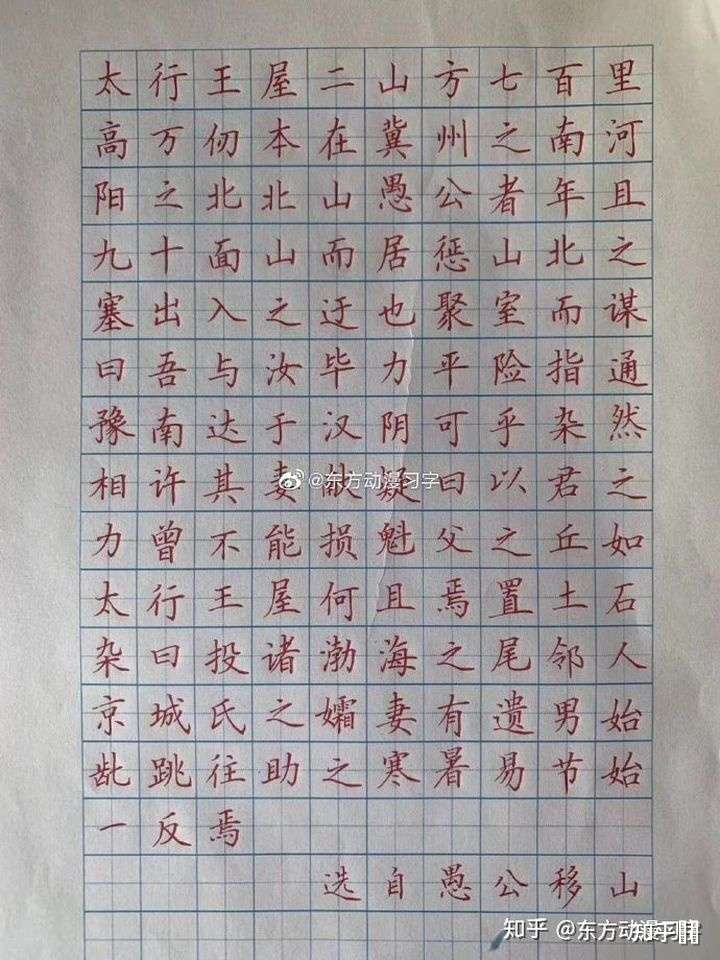 太行王屋二山方七百里
高万仞本在冀州之南河
阳之北北山愚公者年且
九十面山而居惩山北之
塞出入之迂也聚室而谋
曰吾与汝毕力平险指通
豫南达于汉阴可乎杂然
相许其妻献疑曰以君之
@东方动漫习字
力曾不能损魁父之丘如
太行王屋何且焉置土石
杂曰投诸渤海之尾邻人
京城氏之孀妻有遗男始
龀跳往助之寒暑易节始
一反焉
选自愚公移山
知乎 @东方动漫习